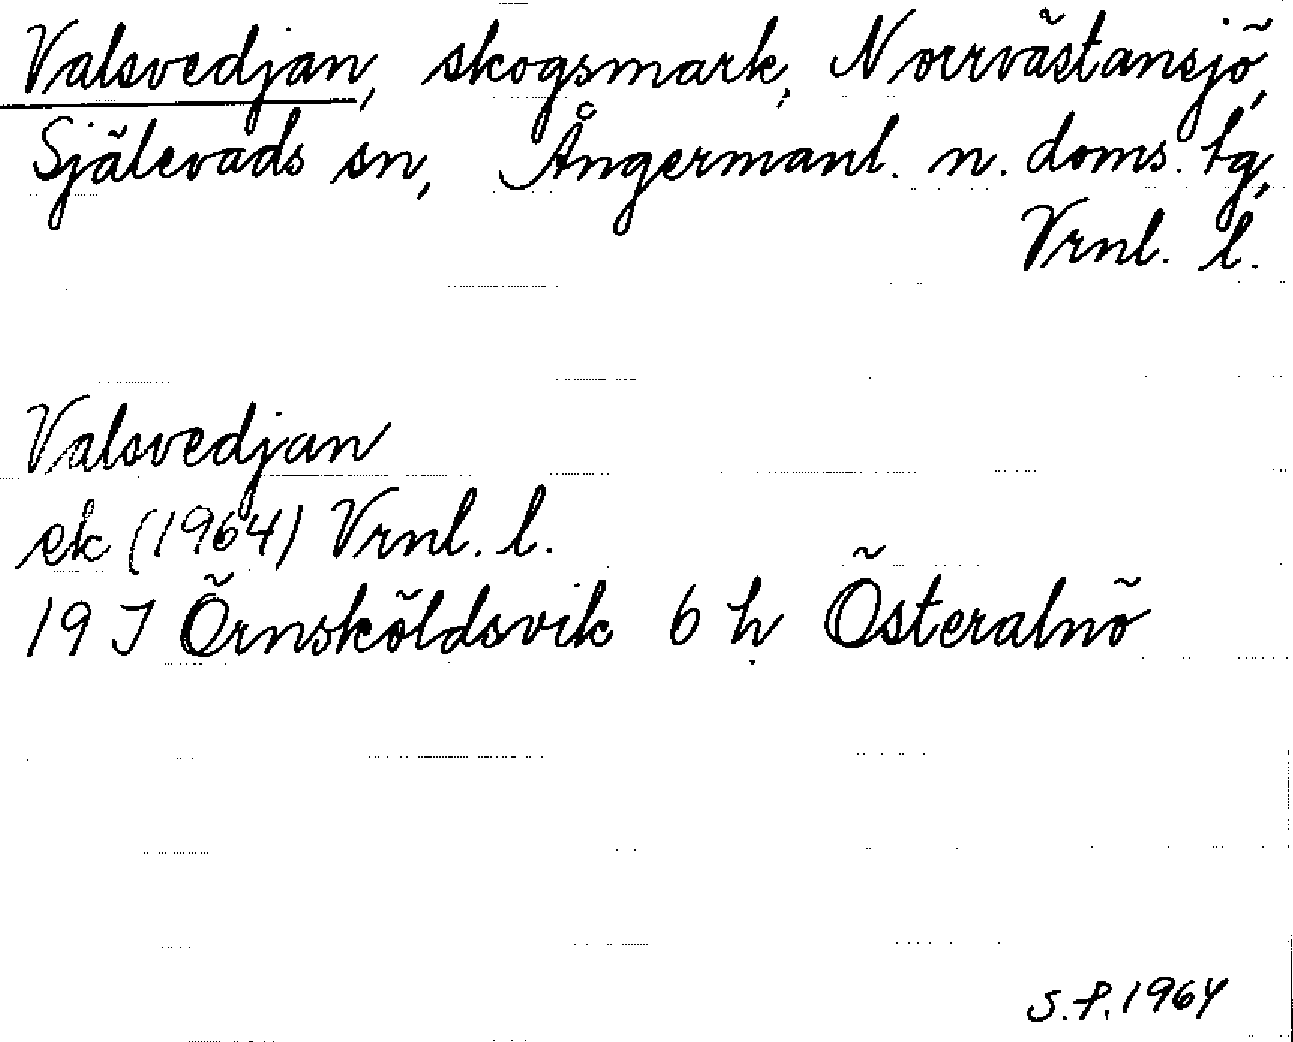 Valsvedjan, skogsmark, Norrvästansjö,
Själevads sn, Ångermanl. n. doms. tg,
Vrnl. l.
Valsvedjan
ek (1964) Vrnl. l.
19 J Örnsköldsvik 6 h Österalnö
S.P. 1964